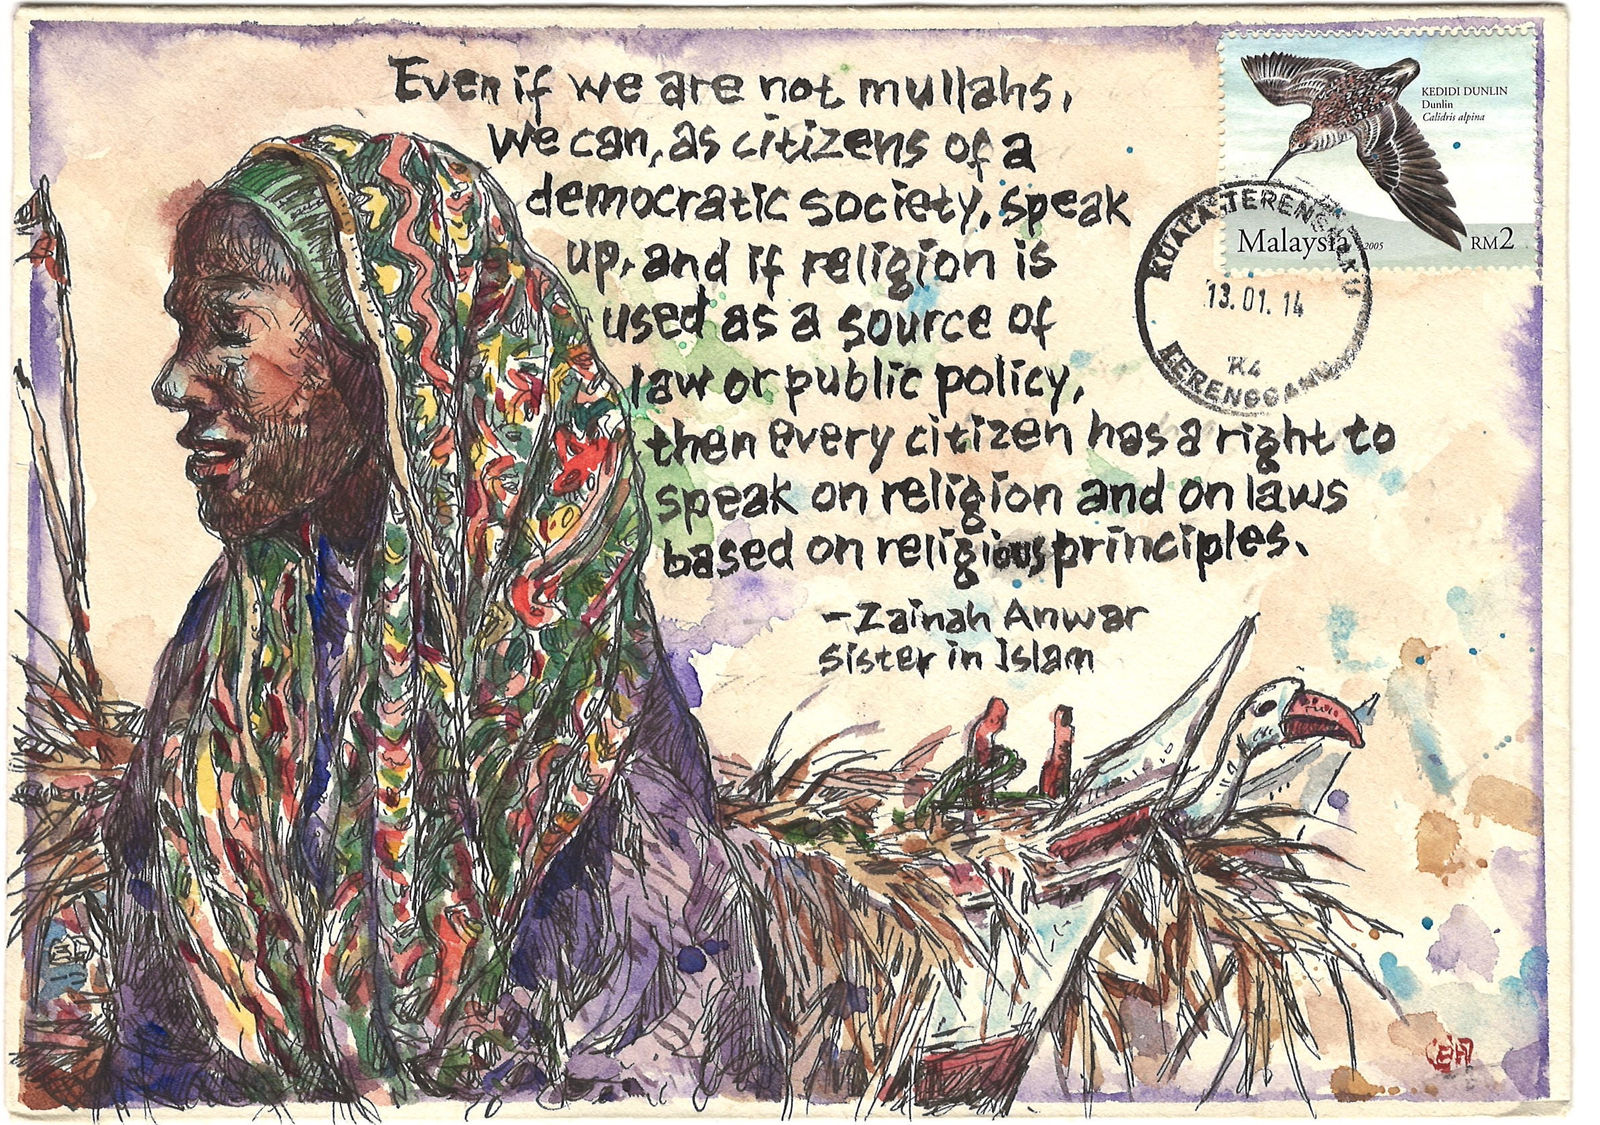 Even if we are not mullahs,
we can, as citizens of a
democratic society, speak
up, and if religion is
used as a source of
law or public policy,
then every citizen has a right to
speak on religion and on laws
based on religious principles.
-Zainah Anwar
Sister in Islam
KEDIDI DUNLIN
Dunlin
Calidris alpina
Malaysia 2005 RM2
KUALA TERENGGANU
13.01.14
K4
TERENGGANU